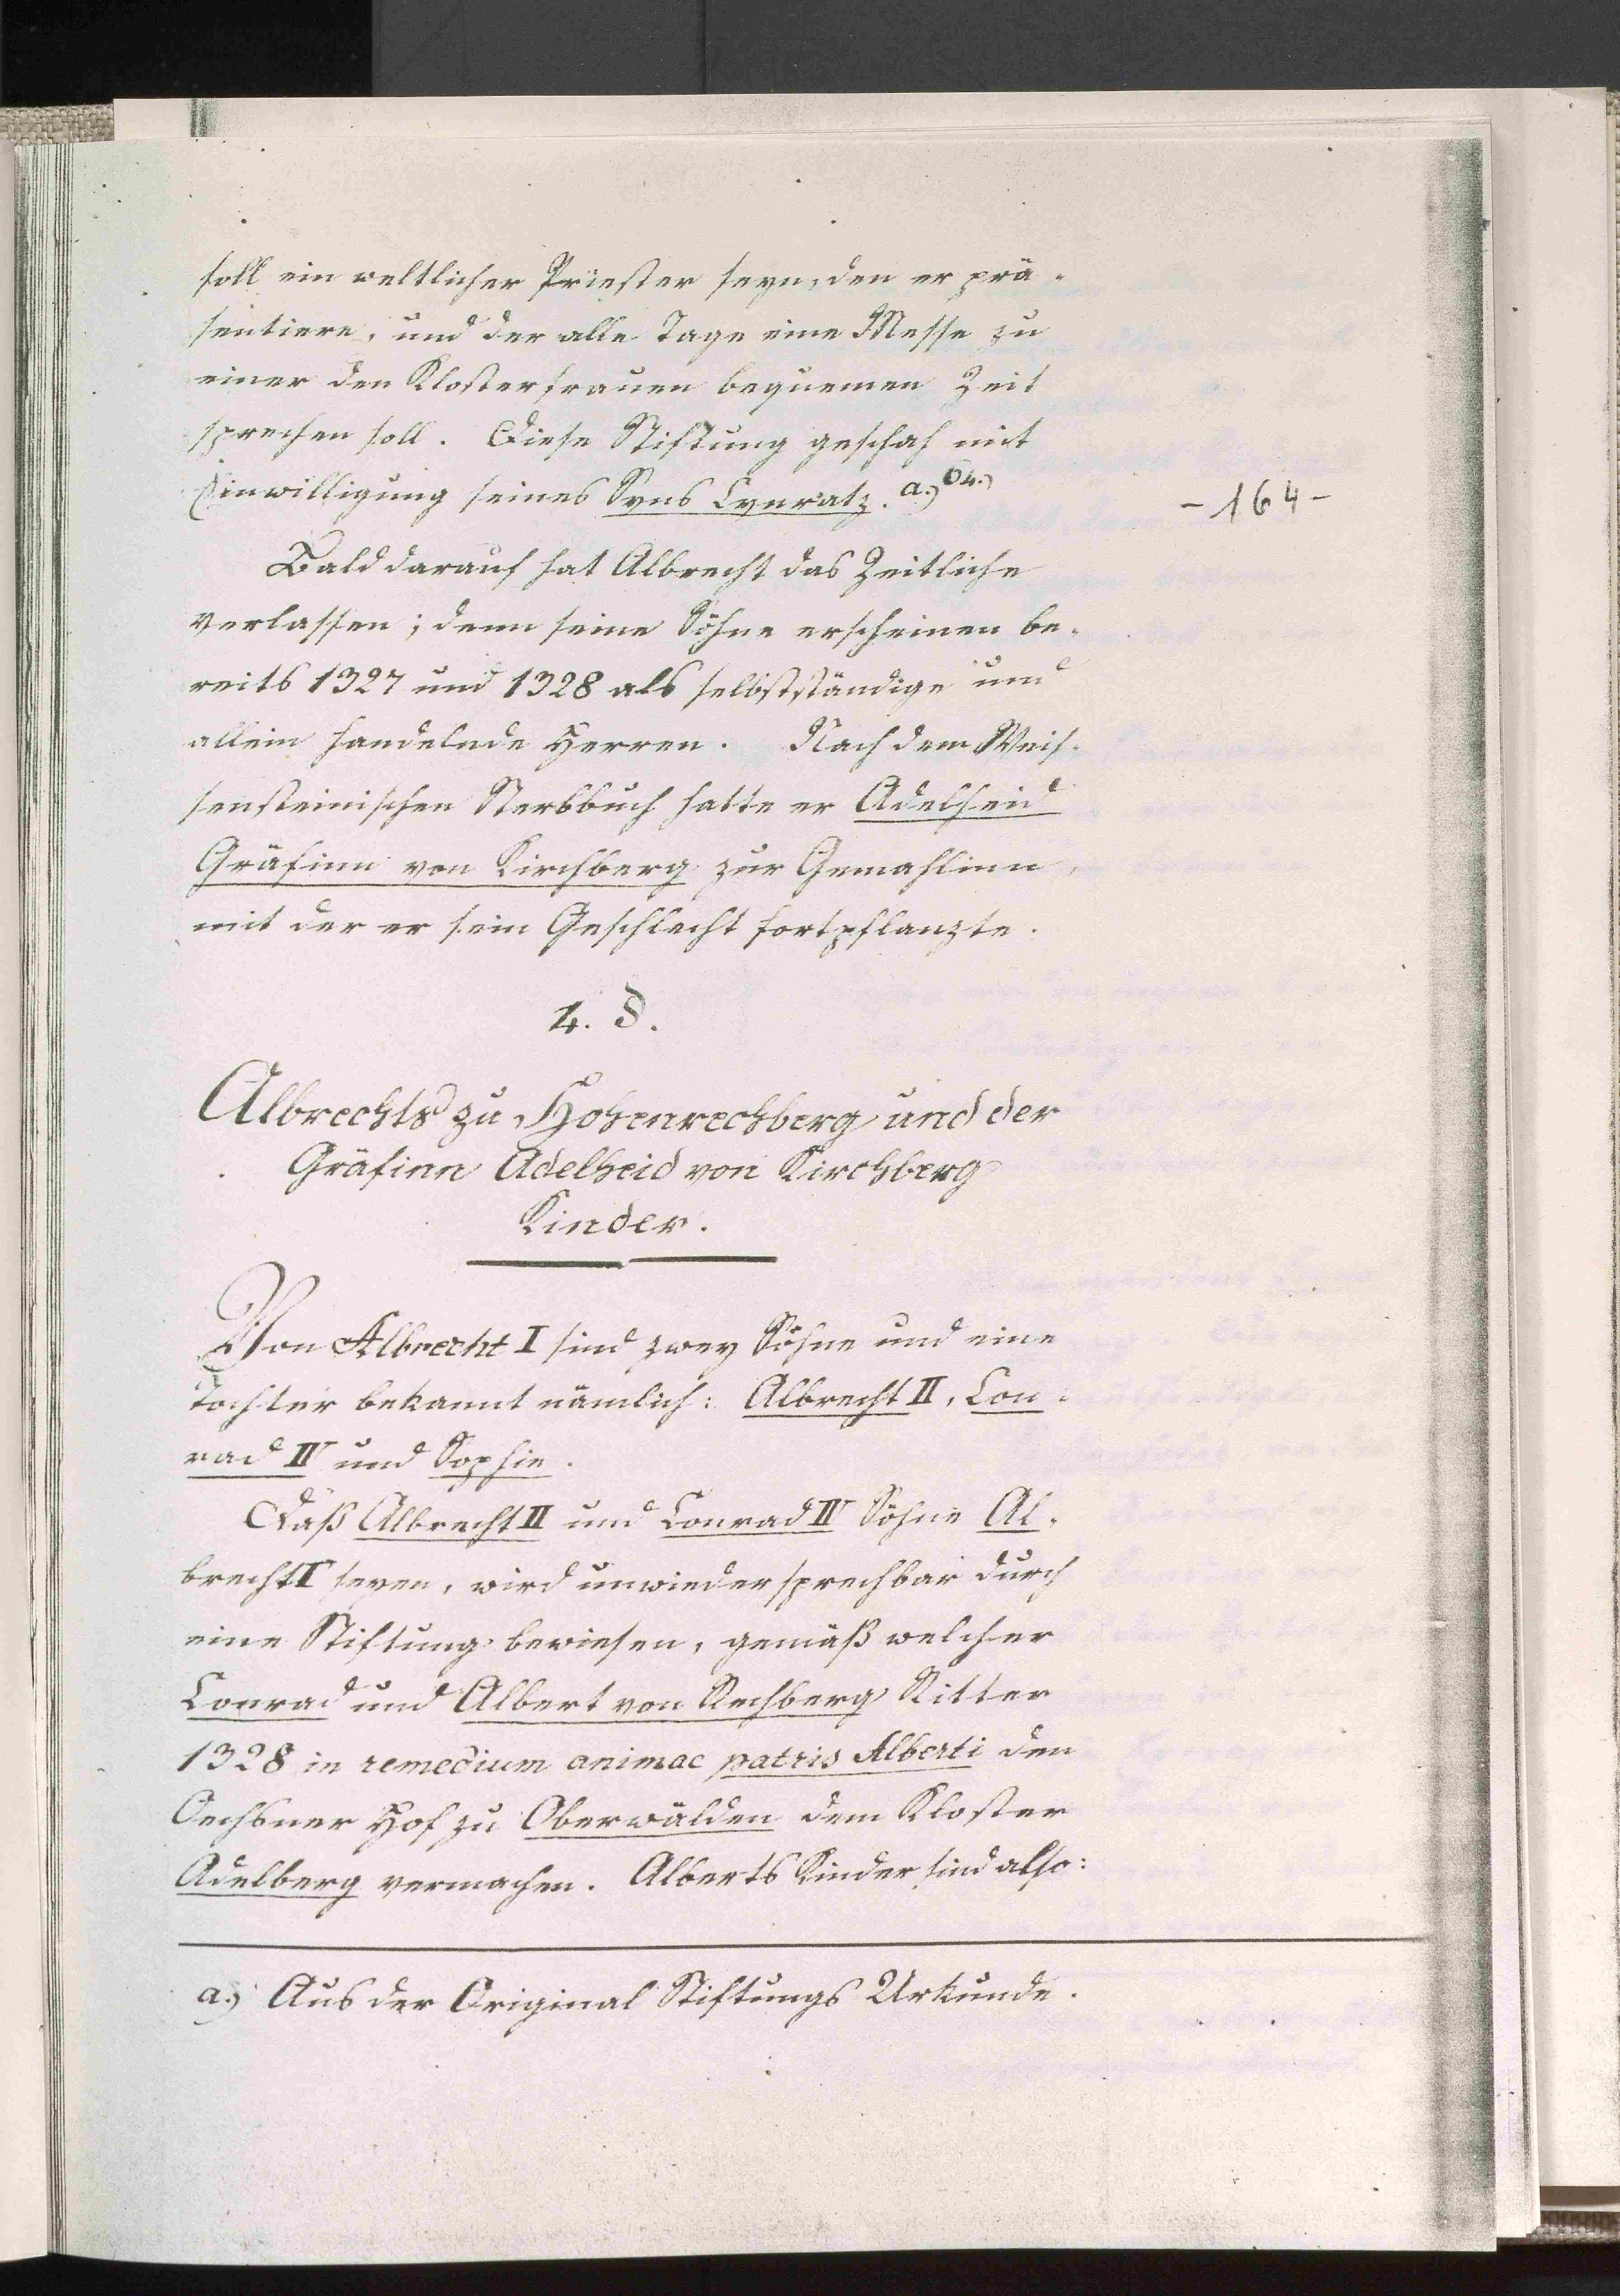 soll ein weltlicher Priester seyn, den er prä-
sentiere, und der alle Tage eine Messe zu
einer den Klosterfrauen bequemen Zeit
sprechen soll. Diese Stiftung geschah mit
Einwilligung seines Syns Cynratz. a.) 64.)
- 164 -
Bald darauf hat Albrecht das Zeitliche
verlassen; denn seine Söhne erscheinen be-
reits 1327 und 1328 als selbstständige und
allein handelnde Herren. Nach dem Weis-
sensteinischen Sterbbuch hatte er Adelheid
Gräfinn von Kirchberg zur Gemahlinn,
mit der er sein Geschlecht fortpflanzte.
4. §.
Albrechts zu Hohenrechberg und der
Gräfinn Adelheid von Kirchberg
Kinder.
Von Albrecht I sind zwey Söhne und eine
Tochter bekannt nämlich: Albrecht II, Con-
rad IV und Sophie.
Daß Albrecht II und Conrad IV Söhne Al-
brecht I seyen, wird unwiedersprechbar durch
eine Stiftung bewiesen, gemäß welcher
Conrad und Albert von Rechberg Ritter
1328 in remedium animae patris Alberti den
Oechsner Hof zu Oberwälden dem Kloster
Adelberg vermachen. Alberts Kinder sind also:
a.) Aus der Original Stiftungs Urkunde.